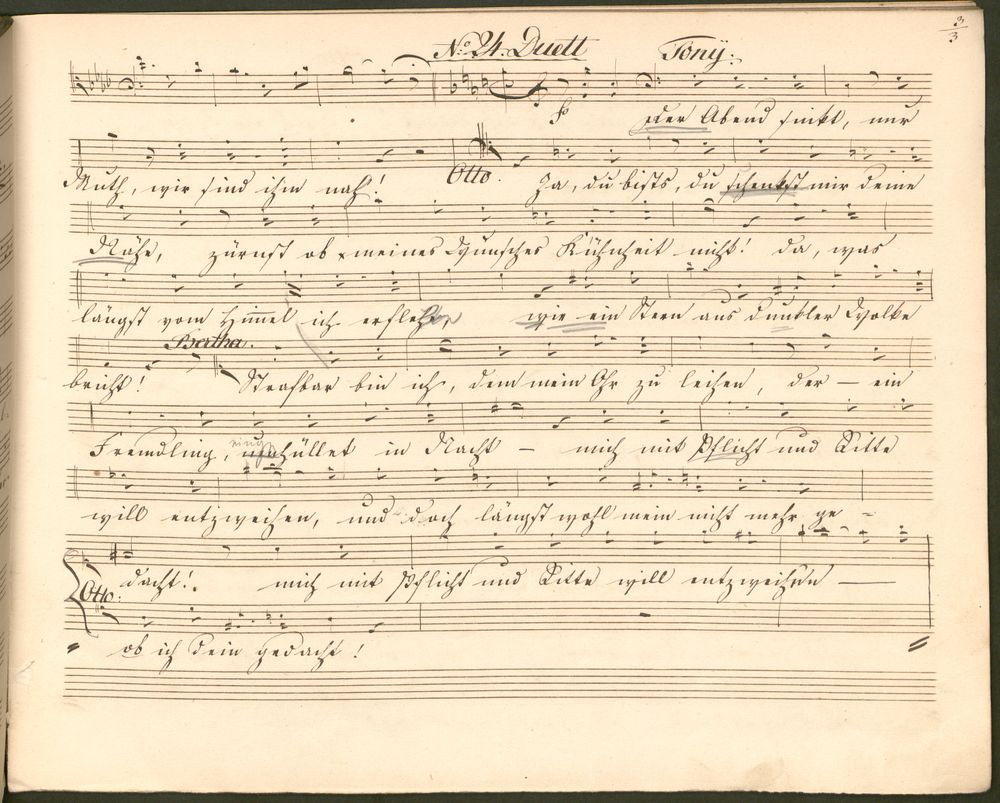 3/3
No 24. Duett Tonÿ:
der Abend sinkt, nur
Muth, wir sind ihm nah!
Otto. Ja, du bists, du schenkst mir deine
Nähe, zürnst ob meines Wunsches Kühnheit nicht! da, was
längst vom Himmel ich erfleht, wie ein Stern aus dunkler Wolke
Bertha.
bricht! Strafbar bin ich, dem mein Ohr zu leihen, der — ein
Fremdling, umhüllet in Nacht — mich mit Pflicht und Sitte
will entzweihen, und doch längst wohl mein nicht mehr ge-
dacht! mich mit Pflicht und Sitte will entzweihen
Otto:
ob ich dein gedacht!